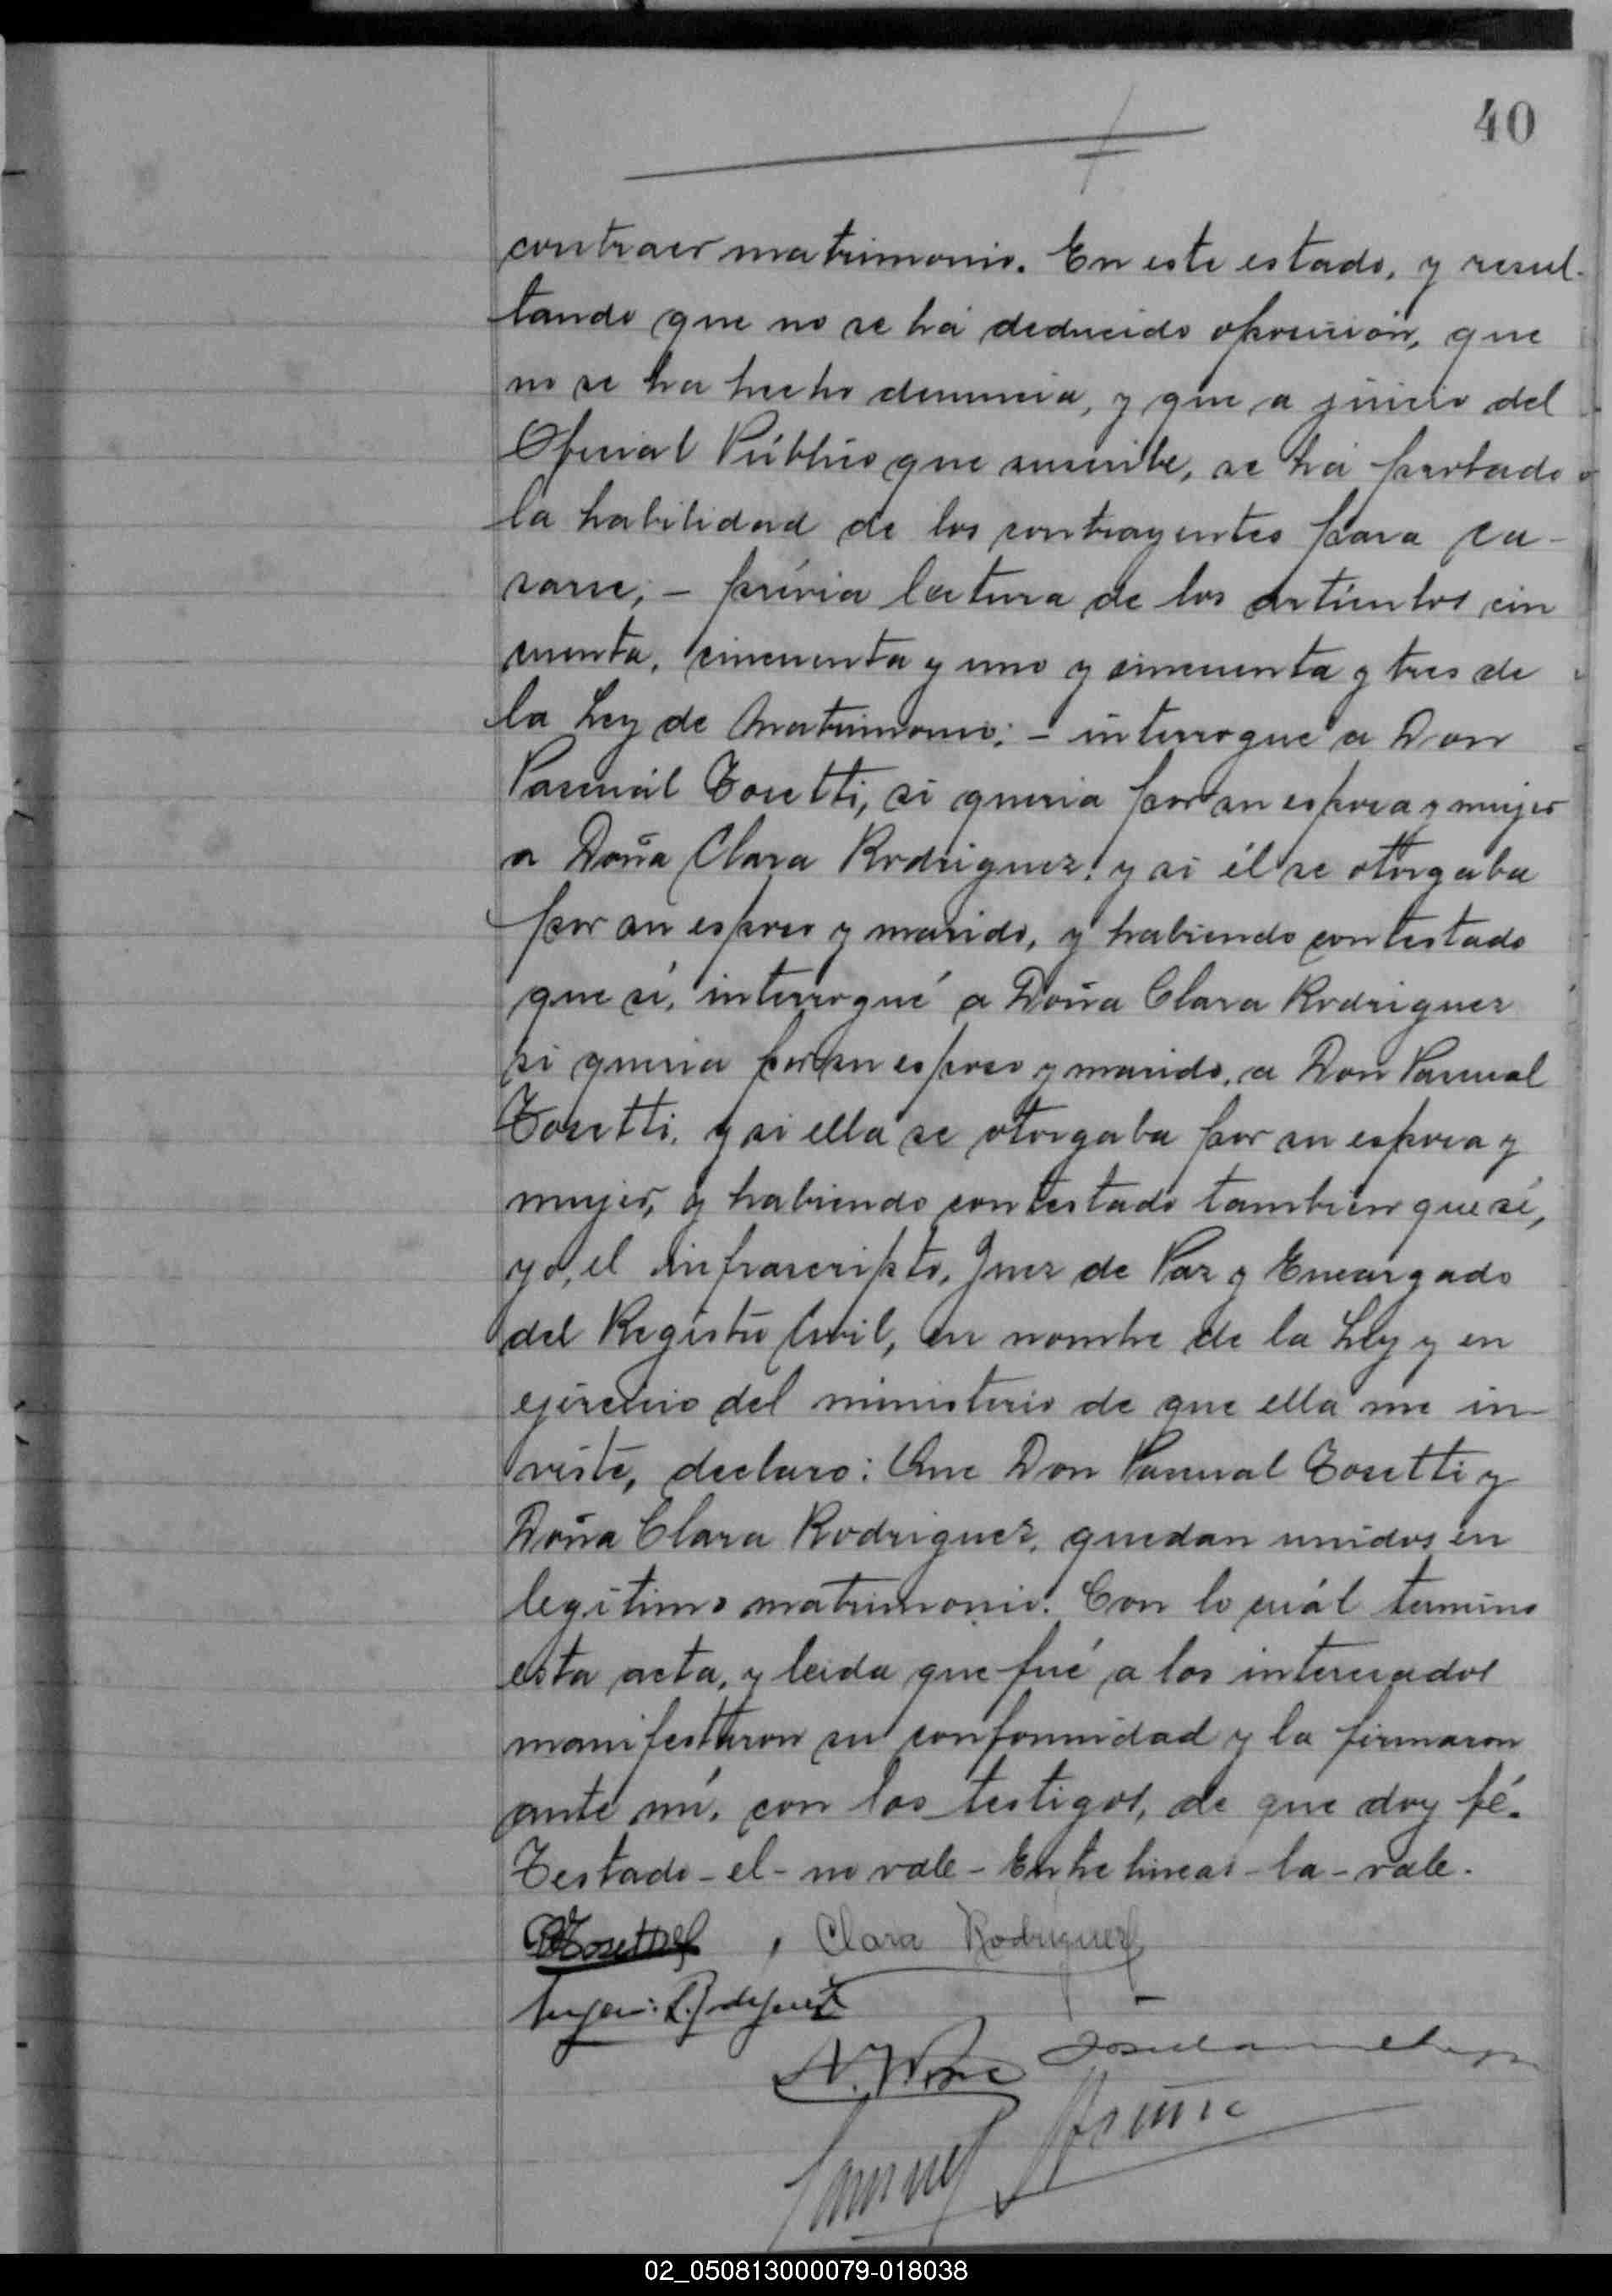 40
contraer matrimonio. En este estado, y resul-
tando que no se há deducido oposición, que
no se ha hecho denuncia, y que a juicio del
Oficial Público que suscribe, se há probado
la habilidad de los contrayentes para ca-
sarse; - prévia lectura de los artículos cin
cuenta, cincuenta y uno y cincuenta y tres de
la Ley de Matrimonio; - interrogué a Don
Pascuál Tosetti, si queria por su esposa y mujer
a Doña Clara Rodriguez, y si él se otorgaba
por su esposo y marido, y habiendo contestado
que sí, interrogué a Doña Clara Rodriguez
si queria por su esposo y marido, a Don Pascual
Tosetti, y si ella se otorgaba por su esposa y
mujer, y habiendo contestado tambien que sí,
yo, el infrascripto, Juez de Paz y Encargado
del Registro Civil, en nombre de la Ley y en
ejercicio del ministerio de que ella me in-
viste, declaro: Que Don Pascual Tosetti y
Doña Clara Rodriguez, quedan unidos en
legítimo matrimonio. Con lo cuál termino
esta acta, y leida que fué a los interesados
manifestaron su conformidad y la firmaron
ante mí, con los testigos, de que doy fé.
Testado - el - no vale - Entre lineas - la - vale.
Tosetti Clara Rodriguez
Rodriguez
N.
Manuel
02_050813000079-018038